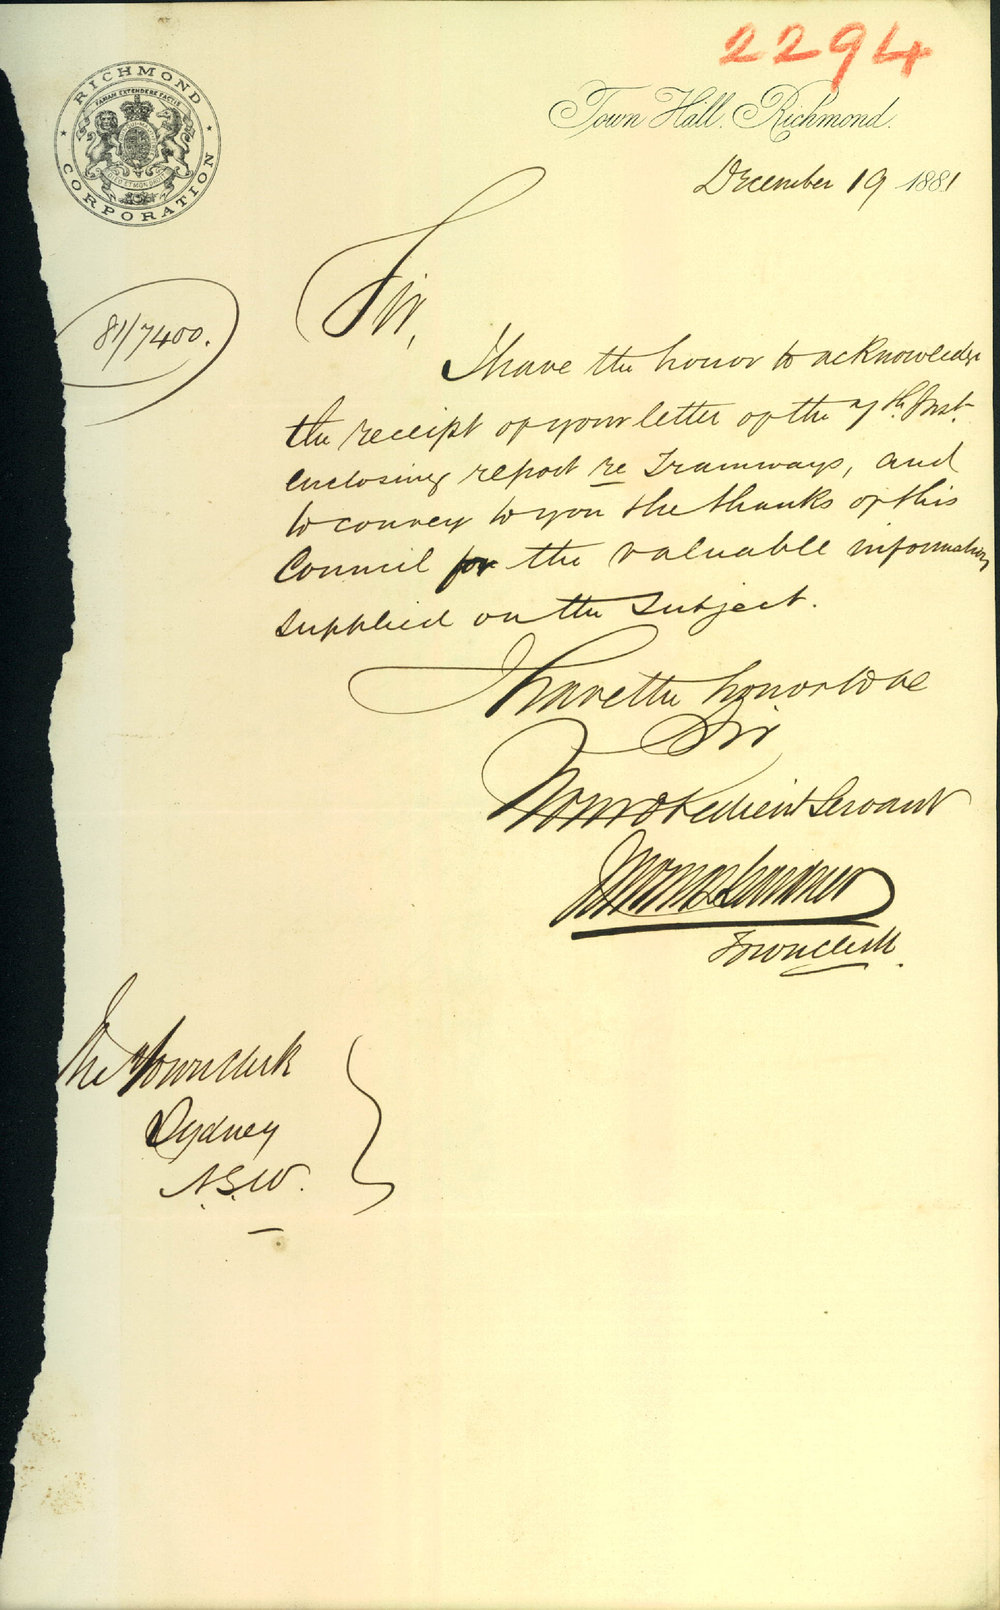 2294
RICHMOND CORPORATION
FAMAM EXTENDERE FACTIS
Town Hall. Richmond.
December 19 1881
81/7400.
Sir,
I have the honor to acknowledge
the receipt of your letter of the 7th. Inst.
enclosing report re Tramways, and
to convey to you the thanks of this
Council for the valuable information
supplied on the subject.
I have the honor to be
Sir
Your obedient Servant
Town Clerk.
The Town Clerk
Sydney
N.S.W.